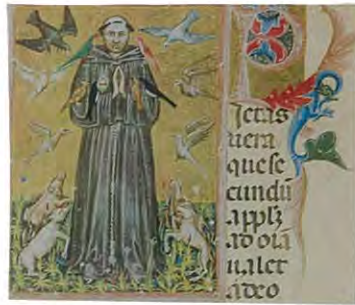 ietas
uera
que se
cundū
applʒ
ad oīa
ualet
adeo